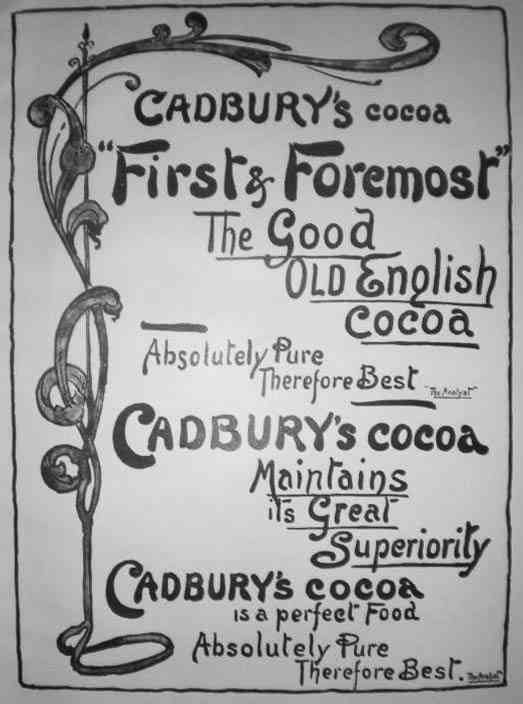 CADBURY'S COCOA
"First & Foremost"
The Good
OLD English
Cocoa
Absolutely Pure
Therefore Best "The Analyst"
CADBURY'S COCOA
Maintains
its Great
Superiority
CADBURY'S COCOA
is a perfect Food
Absolutely Pure
Therefore Best. The Analyst